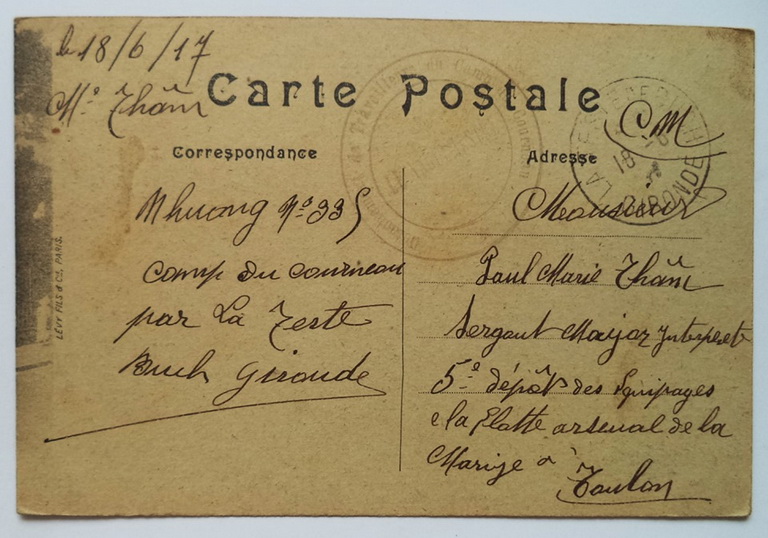 le 18/6/17
Mr Thâm
Carte Postale
CM
Correspondance
Adresse
LA GIRONDE
18
Nhuong No 335
camp du courneau
par La Teste
Buch Gironde
LÉVY FILS & Cie, PARIS.
Monsieur
Paul Marie Thâm
Sergent Major Interprete
5e dépôt des Equipages
de la Flotte arsenal de la
Marine à
Toulon